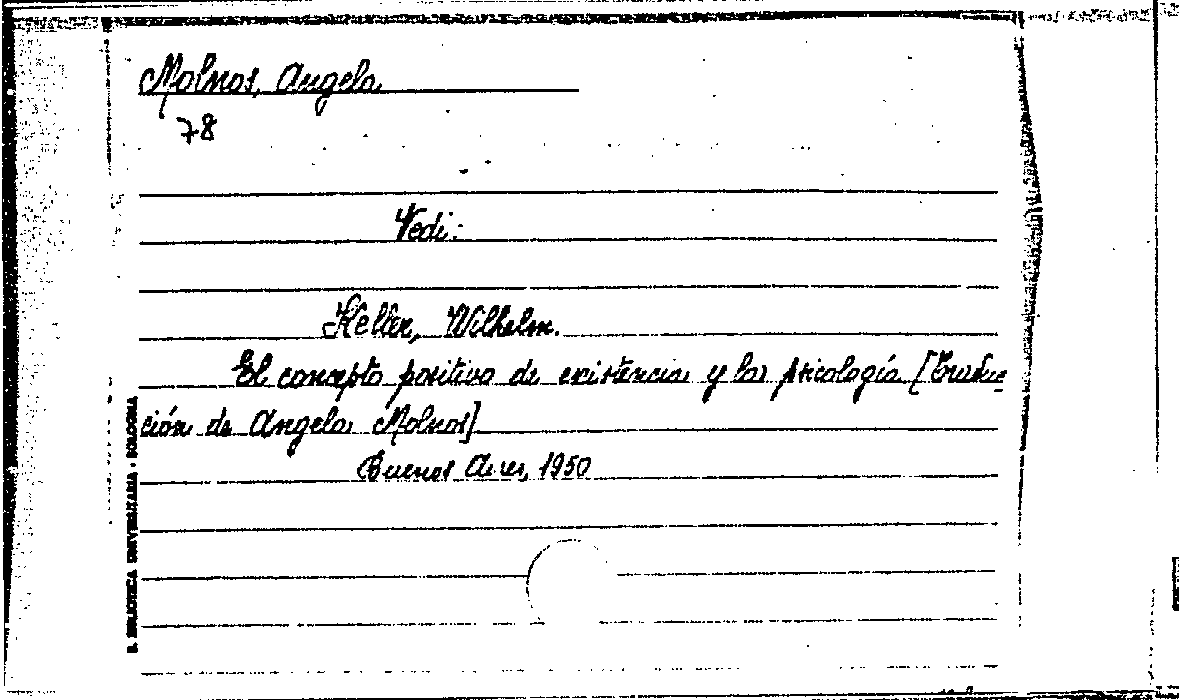 Molnos, Angela
78
Vedi:
Keller, Wilhelm.
El concepto positivo de existencia y la psicología [Traduc=
ción de Angela Molnos]
Buenos Aires, 1950
B. BIBLIOTECA UNIVERSITARIA - BOLOGNA